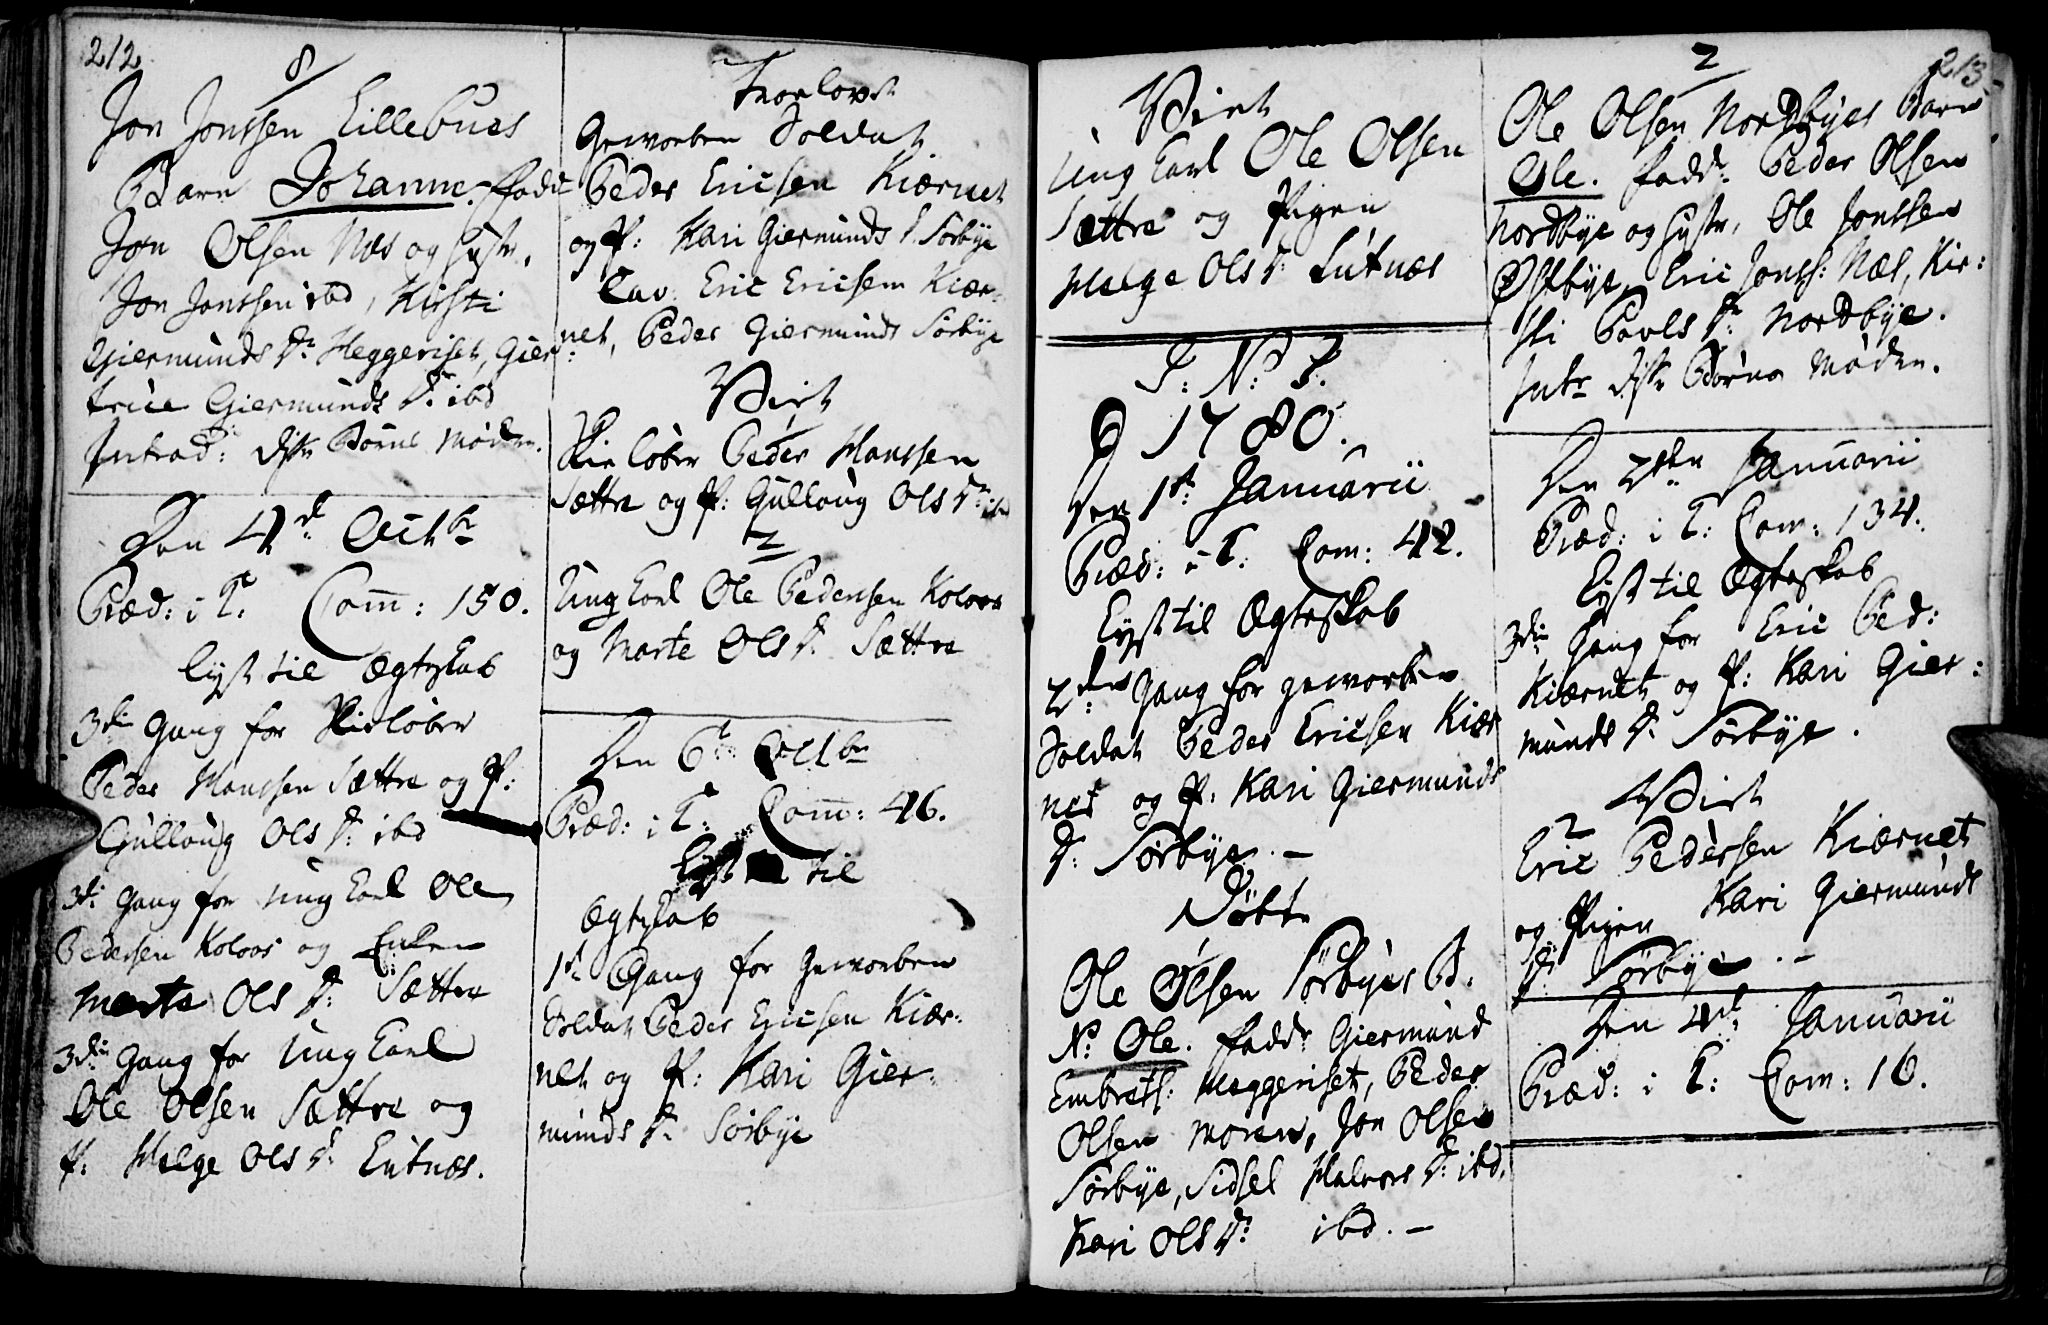 212.
8
Jon Jonssen Lillebues
Barn Johanne. fadd
Jon Olsen Næs og hustr.
Jon Jonssen ibd, Kirsti
Giermunds Dr Heggeriset, Gier
trud Giermunds Dr ibd
Introd: diss Børns Mødre.
Den 4d Octbr
Præd: i T. Com̄: 150.
Lyst til Ægteskab
3die Gang for Skieløber
Peder Hanssen Sættre og P:
Gulloug Ols Dr ibd
3die Gang for Ung Carl Ole
Pedersen Kolaas og Enken
Marte Ols Dr: Sættre
3die Gang for Ung Carl
Ole Olsen Sættre og
P. Helge Ols Dr Lutnæs.
Trorlovet
Gevorben Soldat
Peder Ericsen Kiernet
og P: Kari Giermunds D. Sørbye
Cav. Eric Ericsen Kier:
net, Peder Giermunds Sørbye
Viet
Skieløber Peder Hanssen
Sættre og P: Gulloug Ols Dr: ibd
2
Ung Carl Ole Pedersen Kolaas
og Marte Ols Dr. Sættre
Den 6t Octbr
Præd: i T: Com̄: 46.
Lyst til
Ægteskab
1ste Gang for Gevorben
Soldat Peder Ericsen Kier:
net og P: Kari Gier:
munds Dr Sørbye
213.
Viet
Ung Carl Ole Olsen
Sættre og Pigen
Helge Ols Dr: Lutnæs
I: N: J.
1780.
Den 1st: Januarii
Præd: i T. Com: 42.
Lyst til Ægteskab
2den Gang for gevorben
Soldat Peder Ericsen Kier
net og P. Kari Giermunds
D: Sørbye. —
Døbt
Ole Olsen Sørbyes B.
N: Ole. fadd: Giermund
Embrets: Heggeriset, Peder
Olsen Moren, Jon Olsen
Sørbye, Sidsel Halvors Dr: ibd.
Kari Ols Dr: ibd. —
2
Ole Olsen Nordbyes Barn
Ole. fadd: Peder Olsen
Nordbye og hustr, Ole Jonssen
Østbye, Eric Jonss: Næs, Kir:
sti Povls Dr Nordbye.
Intr diss Børns Mødre.
Den 2den Januarii
Præd: i T: Com: 134.
Lyst til Ægteskab
3die Gang for Eric Ped:
Kiernet og P: Kari Gier:
munds D. Sørbye.
Viet
Eric Pedersen Kiernet
og Pigen Kari Giermunds
D: Sørbye. —
Den 4de Januarii
Præd: i T: Com: 16.